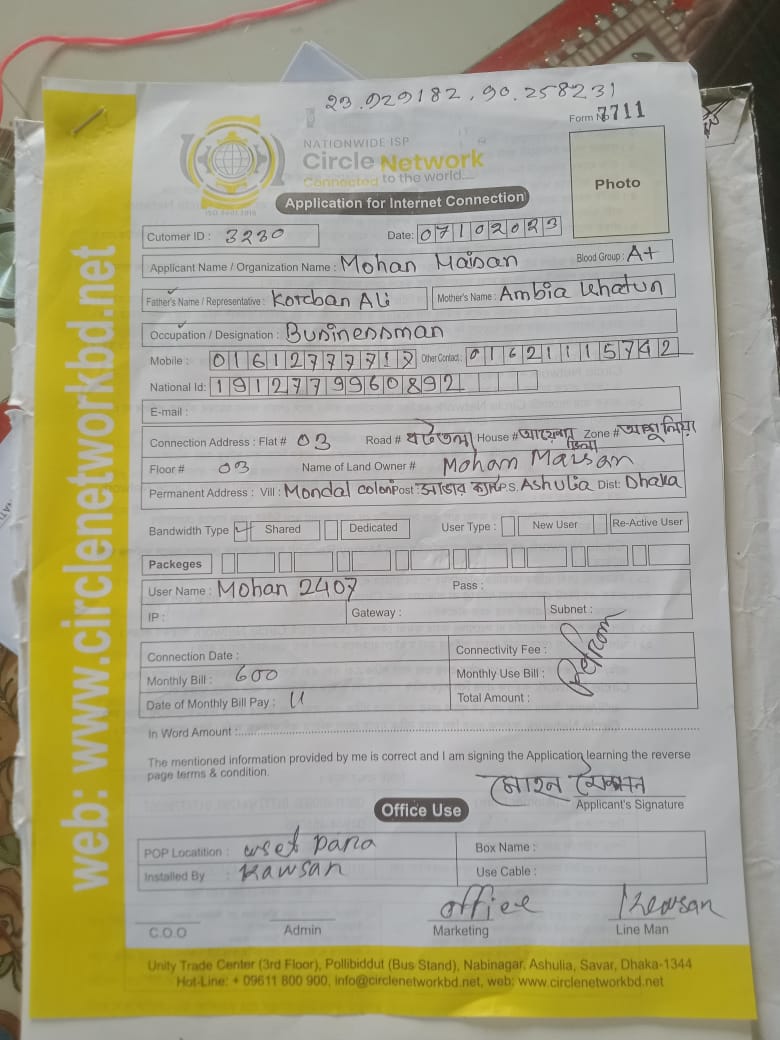 23.929182, 90.258231
Form No 7711
NATIONWIDE ISP
Circle Network
Connected to the world...
ISO 9001:2015
Application for Internet Connection
Photo
Cutomer ID : 3230 Date: 07102023
Applicant Name / Organization Name : Mohan Maisan Blood Group : A+
Father's Name / Representative : Korban Ali Mother's Name : Ambia Khatun
Occupation / Designation : Businessman
Mobile : 01612777717 Other Contact : 01621115742
National Id: 1912779960892
E-mail :
Connection Address : Flat # 03 Road # House # Zone # আশুলিয়া
Floor # 03 Name of Land Owner # Mohan Maisan
Permanent Address : Vill : Mondal coloni Post : সাভার ক্যান্ট P.S. Ashulia Dist: Dhaka
Bandwidth Type Shared Dedicated User Type : New User Re-Active User
Packeges
User Name : Mohan 2407 Pass :
IP : Gateway : Subnet :
Connection Date : Connectivity Fee :
Monthly Bill : 600 Monthly Use Bill :
Date of Monthly Bill Pay : 11 Total Amount :
In Word Amount :
The mentioned information provided by me is correct and I am signing the Application learning the reverse
page terms & condition.
মোহন
Applicant's Signature
Office Use
POP Locatition : para Box Name :
Installed By : Kawsan Use Cable :
office
C.O.O Admin Marketing Line Man
Unity Trade Center (3rd Floor), Pollibiddut (Bus Stand), Nabinagar, Ashulia, Savar, Dhaka-1344
Hot-Line: + 09611 800 900, info@circlenetworkbd.net, web: www.circlenetworkbd.net
web: www.circlenetworkbd.net